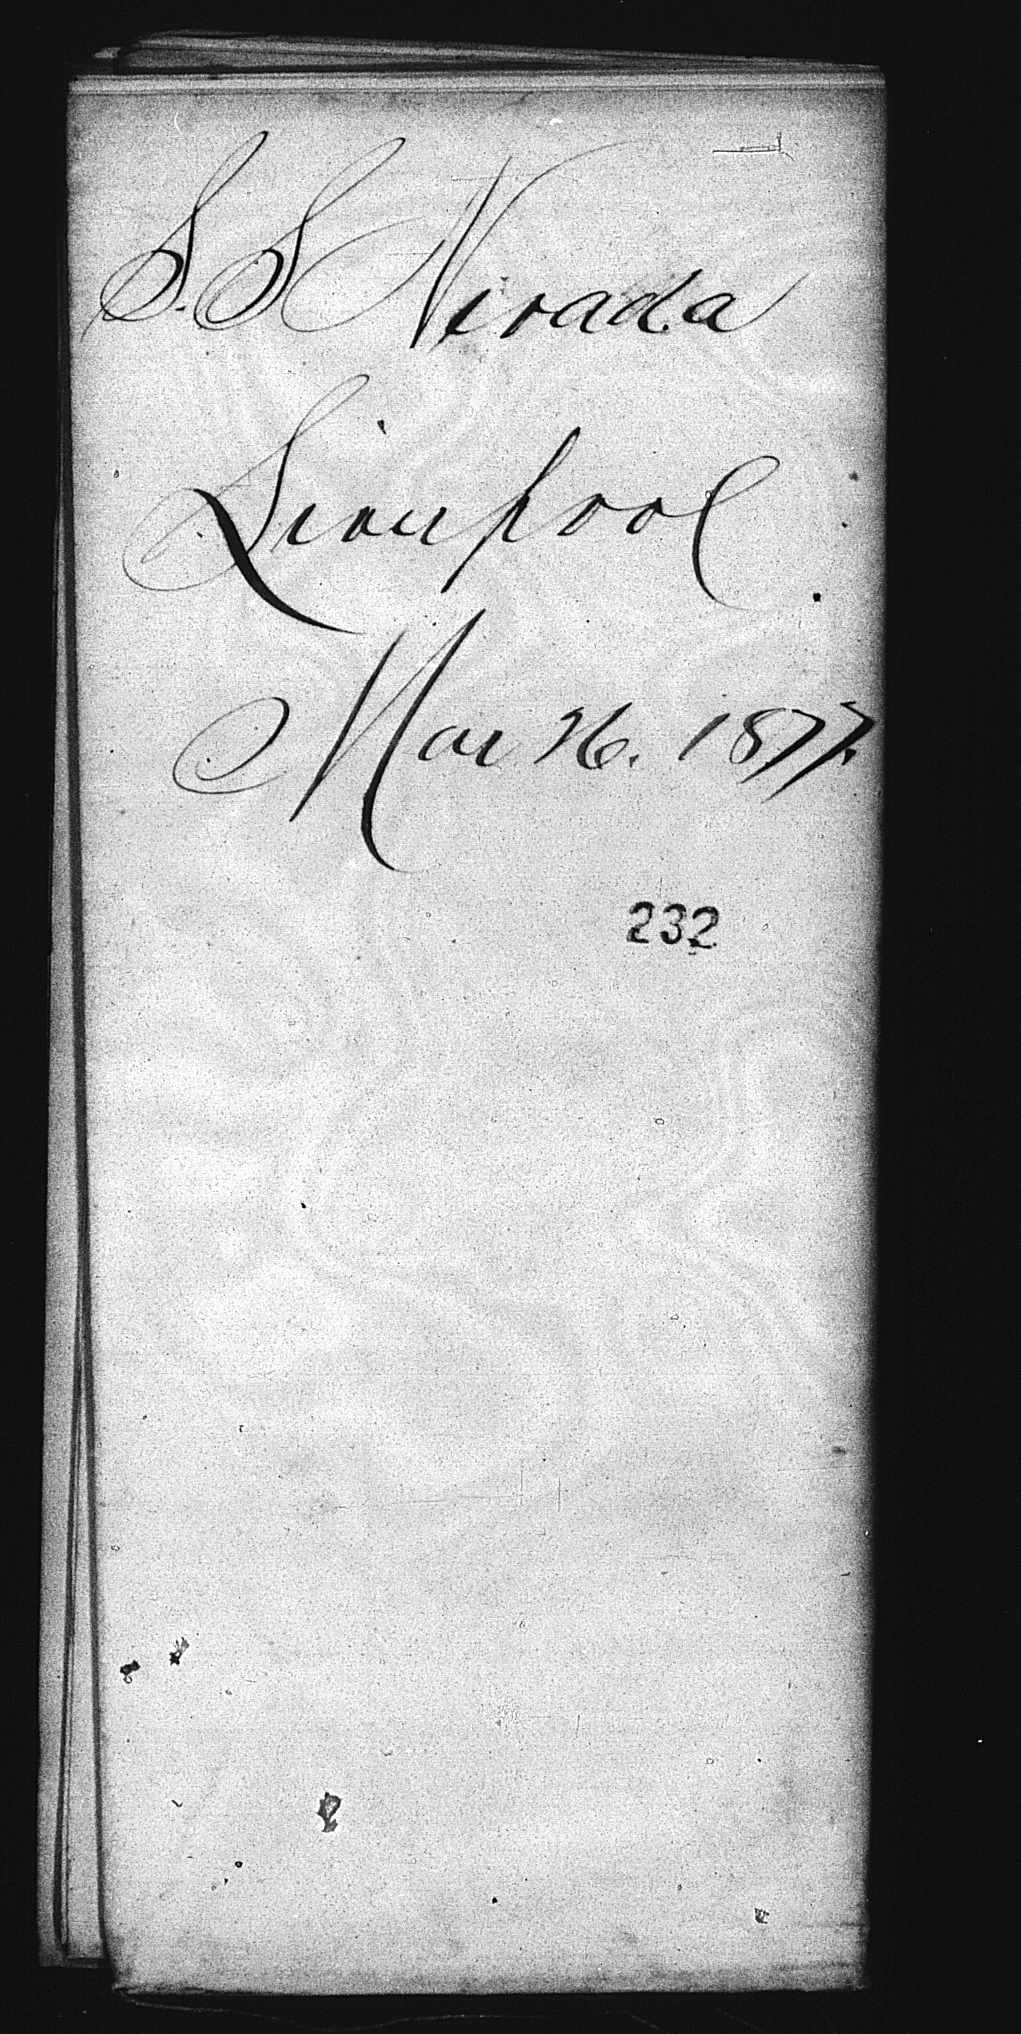 S.S Nevada
Liverpool
Mar 26. 1877.
232